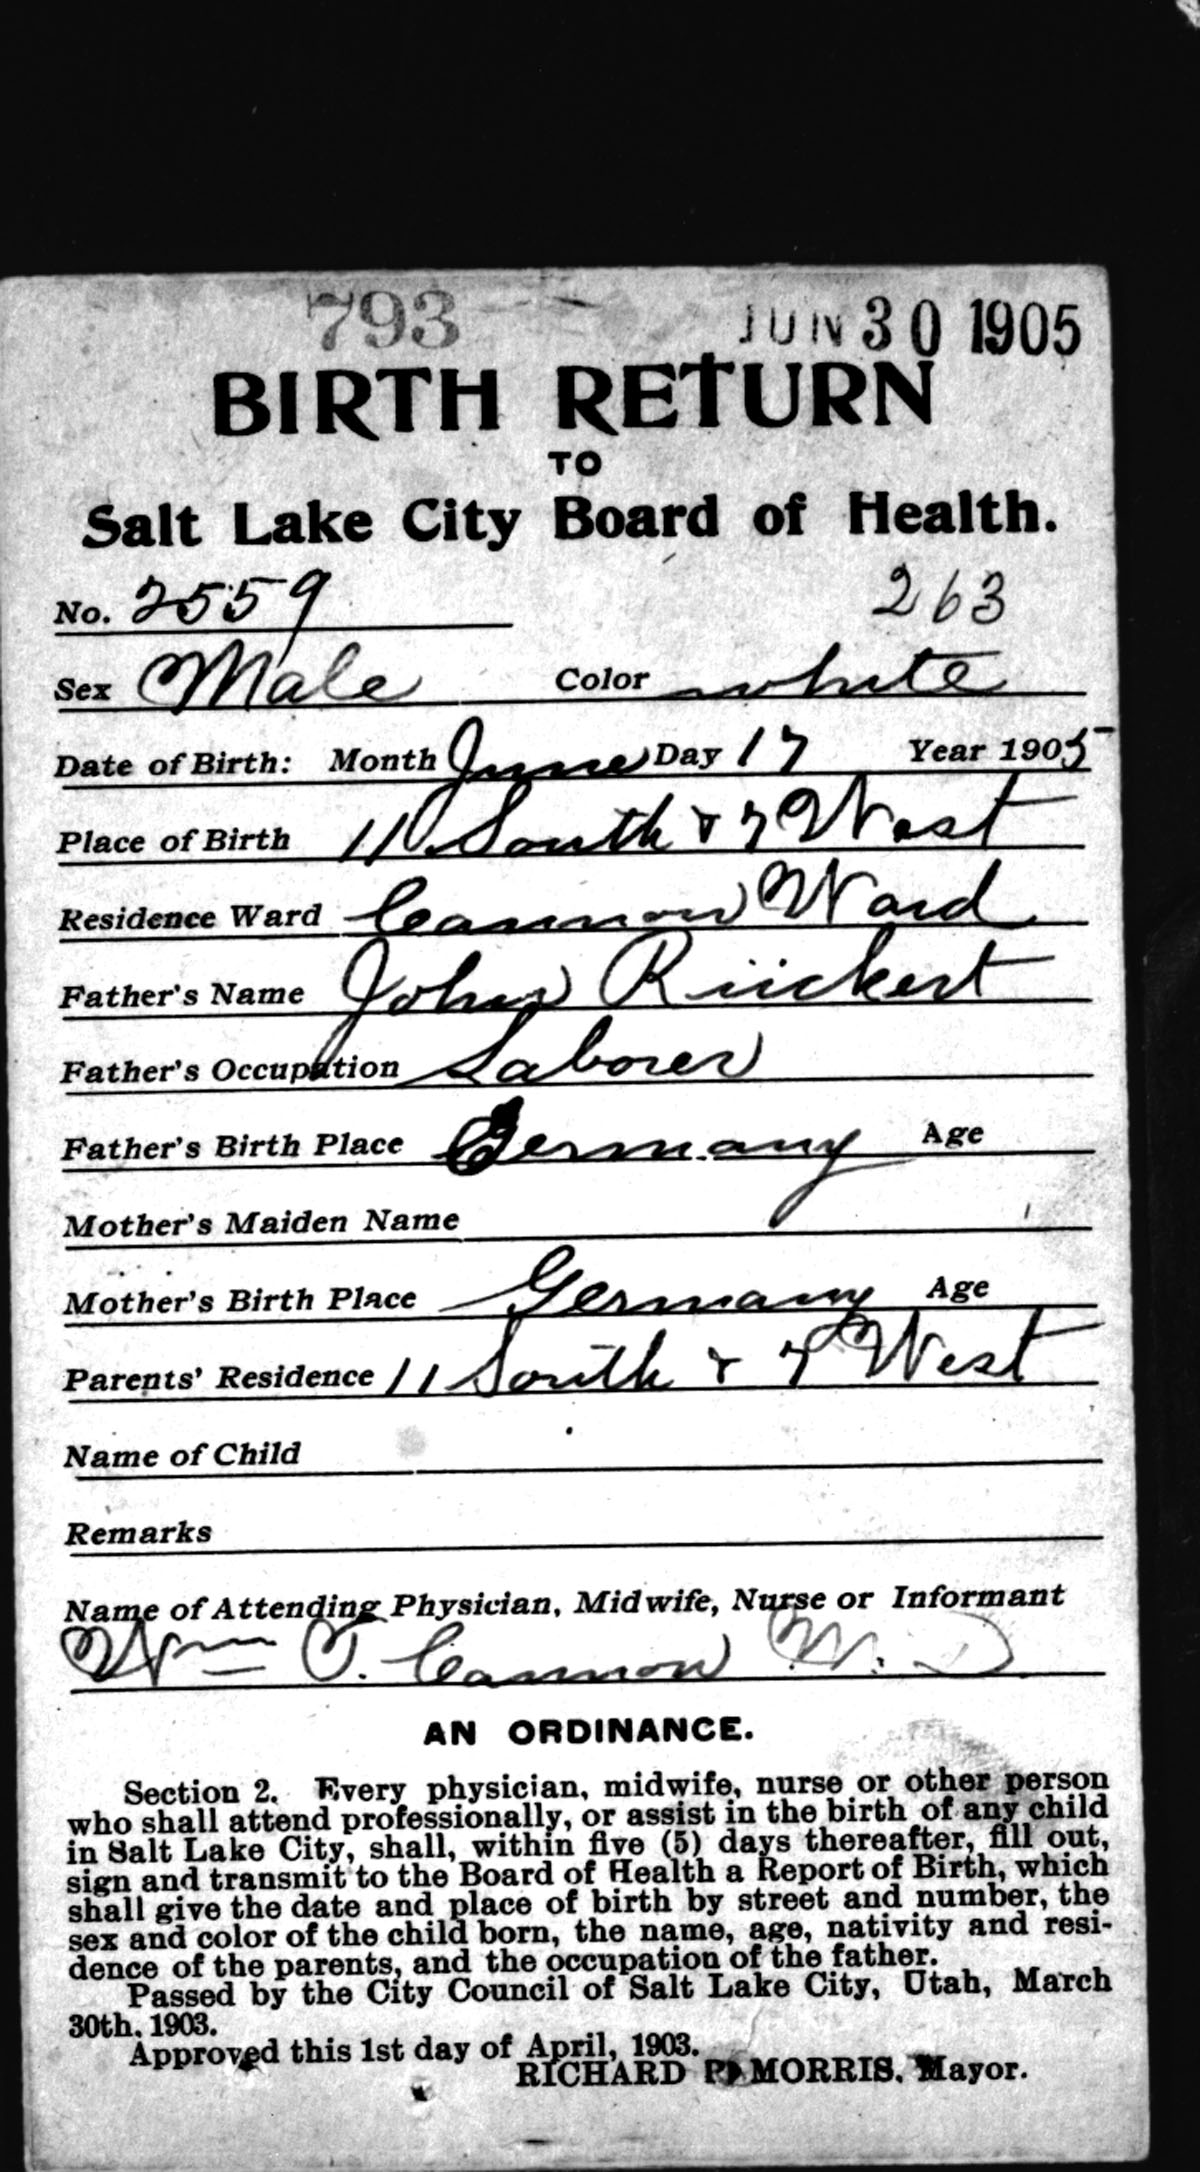 793 JUN 30 1905
BIRTH RETURN
TO
Salt Lake City Board of Health.
No. 2559 263
Sex Male Color white
Date of Birth: Month June Day 17 Year 1905
Place of Birth 11 South & 7 West
Residence Ward Cannon Ward
Father's Name John Rückert
Father's Occupation Laborer
Father's Birth Place Germany Age
Mother's Maiden Name
Mother's Birth Place Germany Age
Parents' Residence 11 South & 7 West
Name of Child
Remarks
Name of Attending Physician, Midwife, Nurse or Informant
Wm T. Cannon M.D.
AN ORDINANCE.
Section 2. Every physician, midwife, nurse or other person
who shall attend professionally, or assist in the birth of any child
in Salt Lake City, shall, within five (5) days thereafter, fill out,
sign and transmit to the Board of Health a Report of Birth, which
shall give the date and place of birth by street and number, the
sex and color of the child born, the name, age, nativity and resi-
dence of the parents, and the occupation of the father.
Passed by the City Council of Salt Lake City, Utah, March
30th, 1903.
Approved this 1st day of April, 1903.
RICHARD P. MORRIS, Mayor.